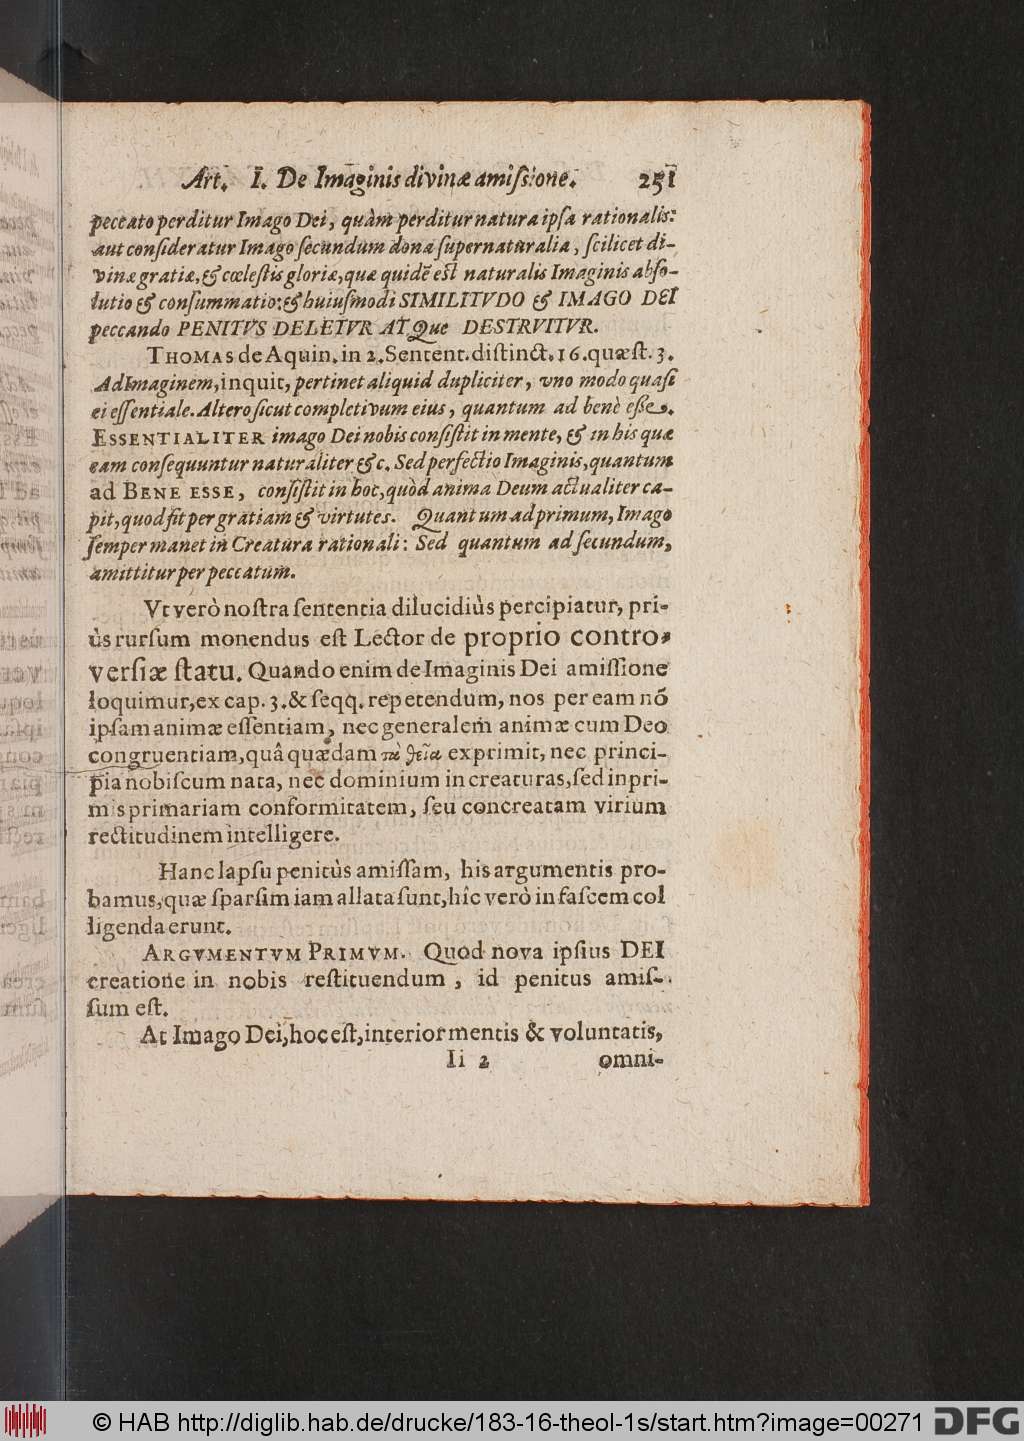 Art. I. De Imaginis divinæ amiſsione. 251
peccato perditur Imago Dei, quàm perditur natura ipſa rationalis:
aut conſideratur Imago ſecundum dona ſupernaturalia, ſcilicet di-
vinæ gratiæ, & cœleſtis gloriæ, quæ quidē eſt naturalis Imaginis abſo-
lutio & conſummatio: & huiuſmodi SIMILITVDO & IMAGO DEI
peccando PENITVS DELETVR ATQue DESTRVITVR.
THOMAS de Aquin. in 2. Sentent. diſtinct. 16. quæſt. 3.
Ad Imaginem, inquit, pertinet aliquid dupliciter, uno modo quaſi
ei eſſentiale. Altero ſicut completivum eius, quantum ad benè eſſe.
ESSENTIALITER imago Dei nobis conſiſtit in mente, & in his quæ
eam conſequuntur naturaliter &c. Sed perfectio Imaginis, quantum
ad BENE ESSE, conſiſtit in hoc, quòd anima Deum actualiter ca-
pit, quod fit per gratiam & virtutes. Quantum ad primum, Imago
ſemper manet in Creatura rationali: Sed quantum ad ſecundum,
amittitur per peccatum.
Vt verò noſtra ſententia dilucidiùs percipiatur, pri-
ùs rurſum monendus eſt Lector de proprio contro-
verſiæ ſtatu. Quando enim de Imaginis Dei amiſſione
loquimur, ex cap. 3. & ſeqq. repetendum, nos per eam nō
ipſam animæ eſſentiam, nec generalem animæ cum Deo
congruentiam, quâ quædam τὰ θεῖα exprimit, nec princi-
pia nobiſcum nata, nec dominium in creaturas, ſed in pri-
mis primariam conformitatem, ſeu concreatam virium
rectitudinem intelligere.
Hanc lapſu penitùs amiſſam, his argumentis pro-
bamus, quæ ſparſim iam allata ſunt, hîc verò in faſcem col
ligenda erunt.
ARGVMENTVM PRIMVM. Quod nova ipſius DEI
creatione in nobis reſtituendum, id penitus amiſ-
ſum eſt.
At Imago Dei, hoc eſt, interior mentis & voluntatis,
Ii 2 omni-
© HAB http://diglib.hab.de/drucke/183-16-theol-1s/start.htm?image=00271 DFG